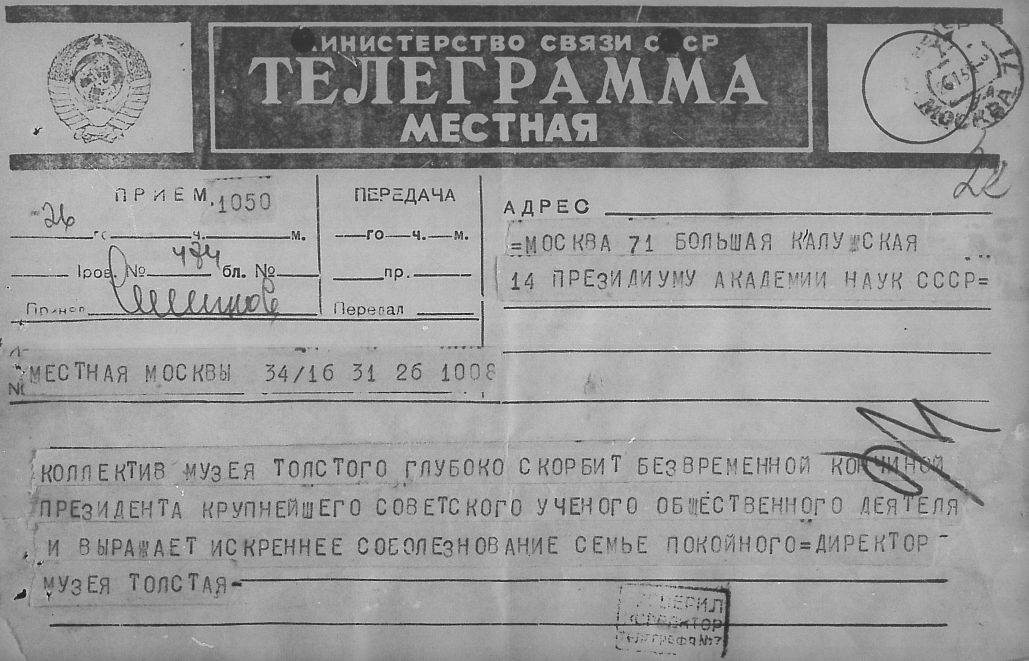 МИНИСТЕРСТВО СВЯЗИ СССР
ТЕЛЕГРАММА
МЕСТНАЯ
МОСКВА 71
22
ПРИЕМ 1050
26 го ч. м.
Пров. № 474 бл. №
ПЕРЕДАЧА
го ч. м.
пр.
Передал
АДРЕС
=МОСКВА 71 БОЛЬШАЯ КАЛУЖСКАЯ
14 ПРЕЗИДИУМУ АКАДЕМИИ НАУК СССР=
МЕСТНАЯ МОСКВЫ 34/16 31 26 1008
КОЛЛЕКТИВ МУЗЕЯ ТОЛСТОГО ГЛУБОКО СКОРБИТ БЕЗВРЕМЕННОЙ КОНЧИНОЙ
ПРЕЗИДЕНТА КРУПНЕЙШЕГО СОВЕТСКОГО УЧЕНОГО ОБЩЕСТВЕННОГО ДЕЯТЕЛЯ
И ВЫРАЖАЕТ ИСКРЕННЕЕ СОБОЛЕЗНОВАНИЕ СЕМЬЕ ПОКОЙНОГО=ДИРЕКТОР-
МУЗЕЯ ТОЛСТАЯ-